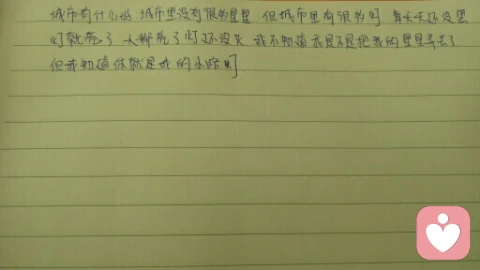 城市有什么好 城市里没有很多星星 但城市里有很多灯 每天天还没黑
灯就亮了 人都死了灯还没灭 我不知道我是不是把我的星星弄丢了
但我知道你就是我的小路灯